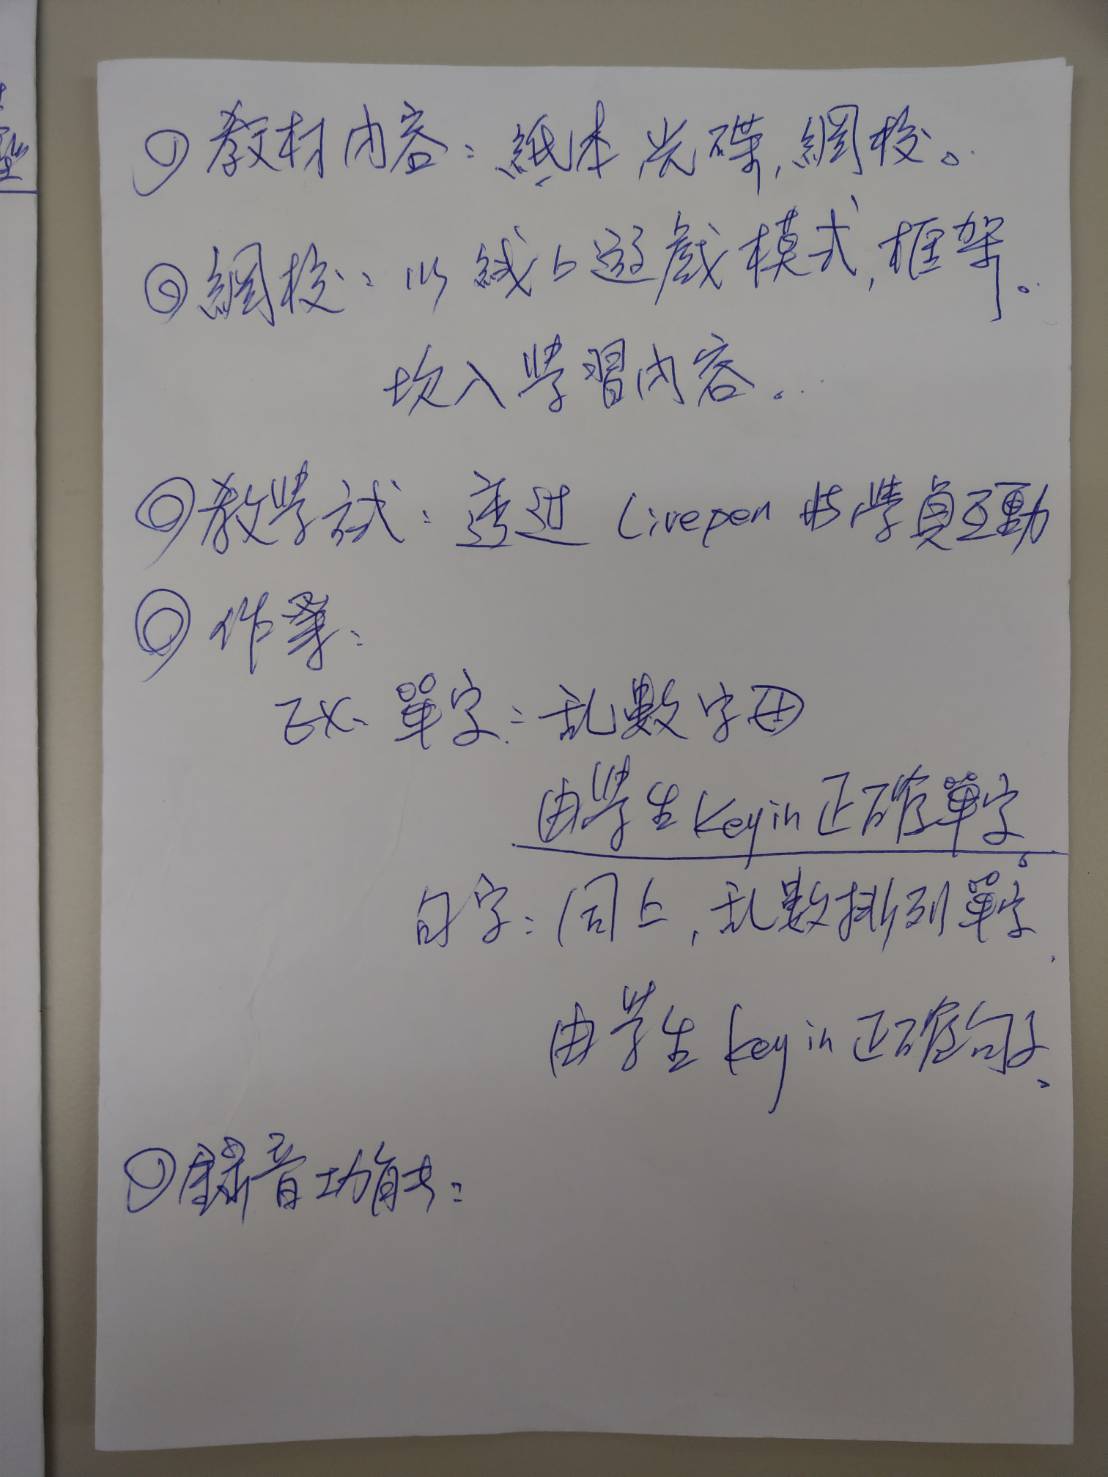 ◎教材內容：紙本光碟,網校。
◎網校：以线上遊戲模式,框架。
坎入學習內容。
◎教學試：透过 Livepen 与學員互動
◎作業：
Ex. 單字：乱數字母
由學生 key in 正確單字。
句字：同上,乱數排列單字.
由學生 key in 正確句子、
◎錄音功能：